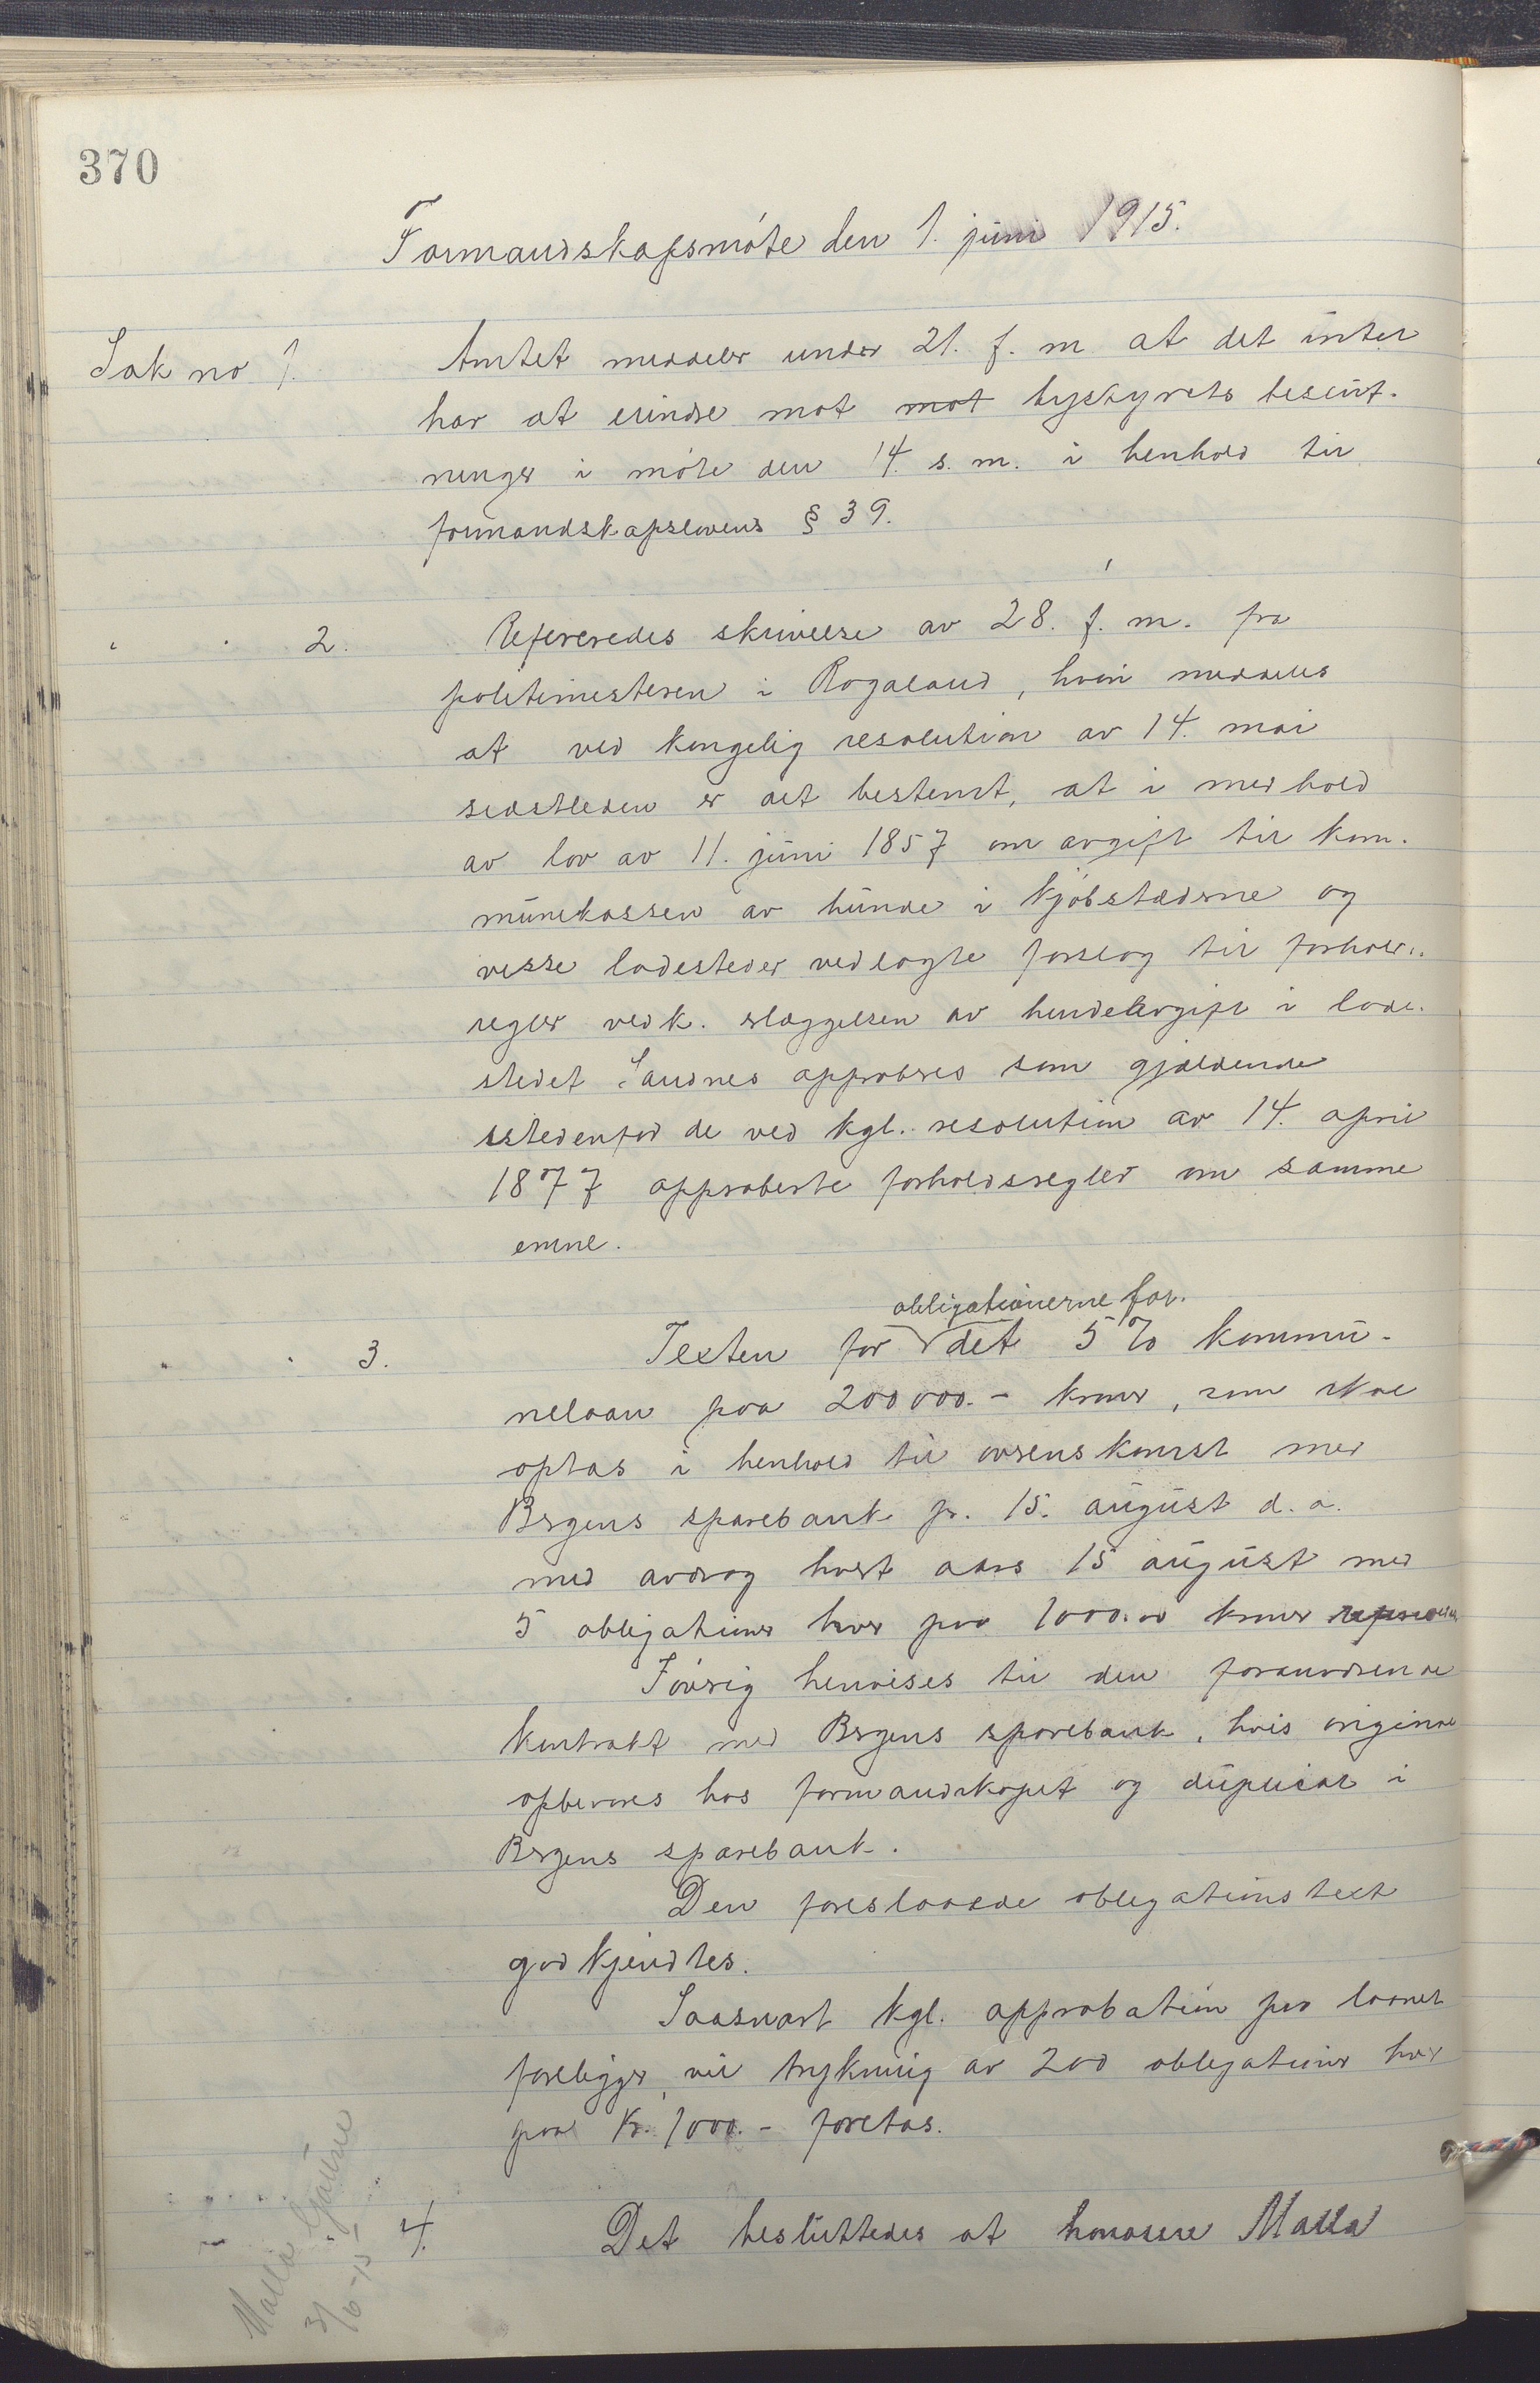 370
Formandskapsmøte den 1. juni 1915.
Sak no 1. Amtet meddeler under 21. f. m. at det intet
har at erindre mot mot bystyrets beslut-
ninger i møte den 14. s. m. i henhold til
formandskapslovens § 39.
" " 2. Refereredes skrivelse av 28. f. m. fra
politimesteren i Rogaland, hvori meddeles
at ved kongelig resolution av 14. mai
sidstleden er det bestemt, at i medhold
av lov av 11. juni 1857 om avgift til kom-
munekassen av hunde i kjøbstæderne og
visse ladesteder vedlagte forslag til forholds-
regler vedk. erlæggelsen av hundeavgift i lade-
stedet Sandnes approberes som gjældende
istedenfor de ved kgl. resolution av 14. april
1877 approberte forholdsregler om samme
emne.
obligationerne for
" " 3. Texten for det 5 % kommu-
nelaan paa 200000.- kroner, som skal
optas i henhold til overenskomst med
Bergens sparebank pr. 15. august d. a.
med avdrag hvert aars 15 august med
5 obligationer hver paa 1000.00 kroner
Iøvrig henvises til den foranværende
kontrakt med Bergens sparebank, hvis original
opbevares hos formandskapet og duplicat i
Bergens sparebank.
Den foreslaaede obligationstext
godkjendtes.
Saasnart kgl. approbation paa laanet
foreligger, vil trykning av 200 obligationer hver
paa kr. 1000.- foretas.
" " 4. Det besluttedes at honorere Malla
Malla Gjøune
3/6-15